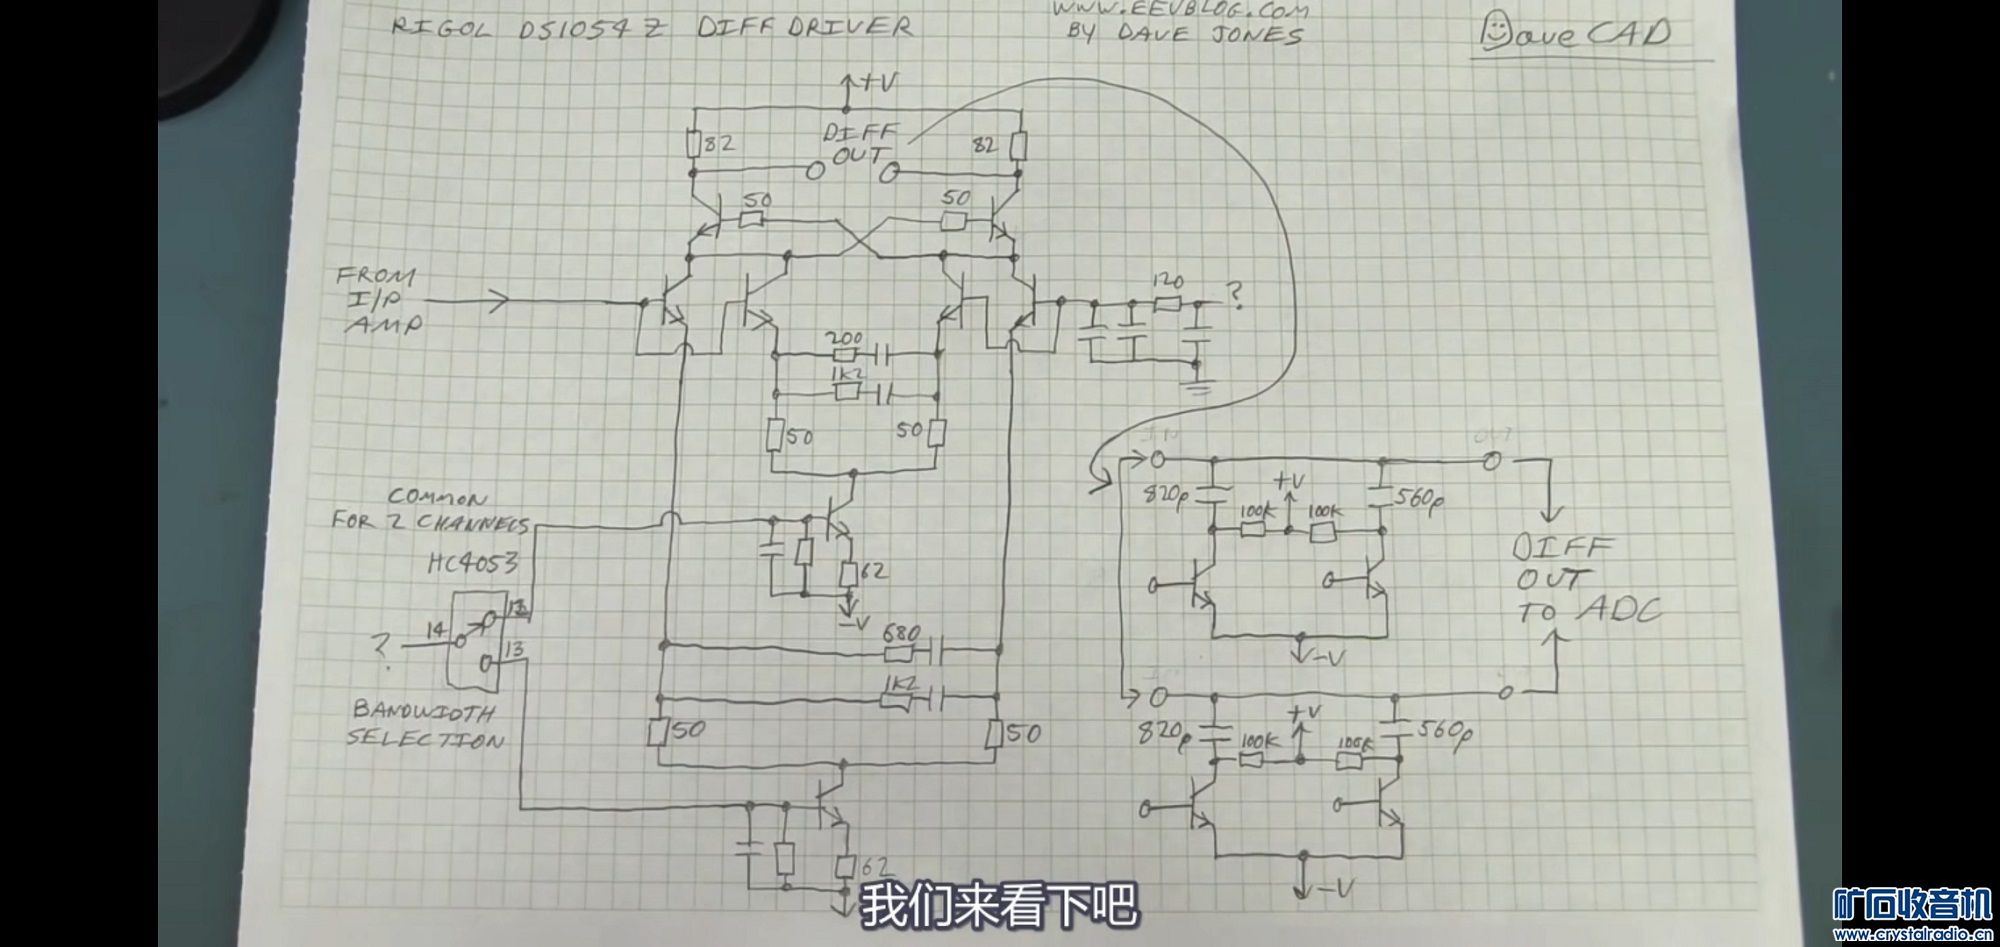 WWW.EEVBLOG.COM
RIGOL DS1054Z DIFF DRIVER
BY DAVE JONES
Dave CAD
+V
82
DIFF
OUT
82
50
50
FROM
I/P
AMP
120
?
200
1K2
50
50
IN
OUT
820p
+V
560p
100K
100K
COMMON
FOR 2 CHANNELS
HC4053
DIFF
OUT
TO ADC
62
-V
14
12
13
?
680
1K2
-V
BANDWIDTH
SELECTION
50
50
820p
+V
560p
100K
100K
62
-V
我们来看下吧
矿石收音机
www.crystalradio.cn